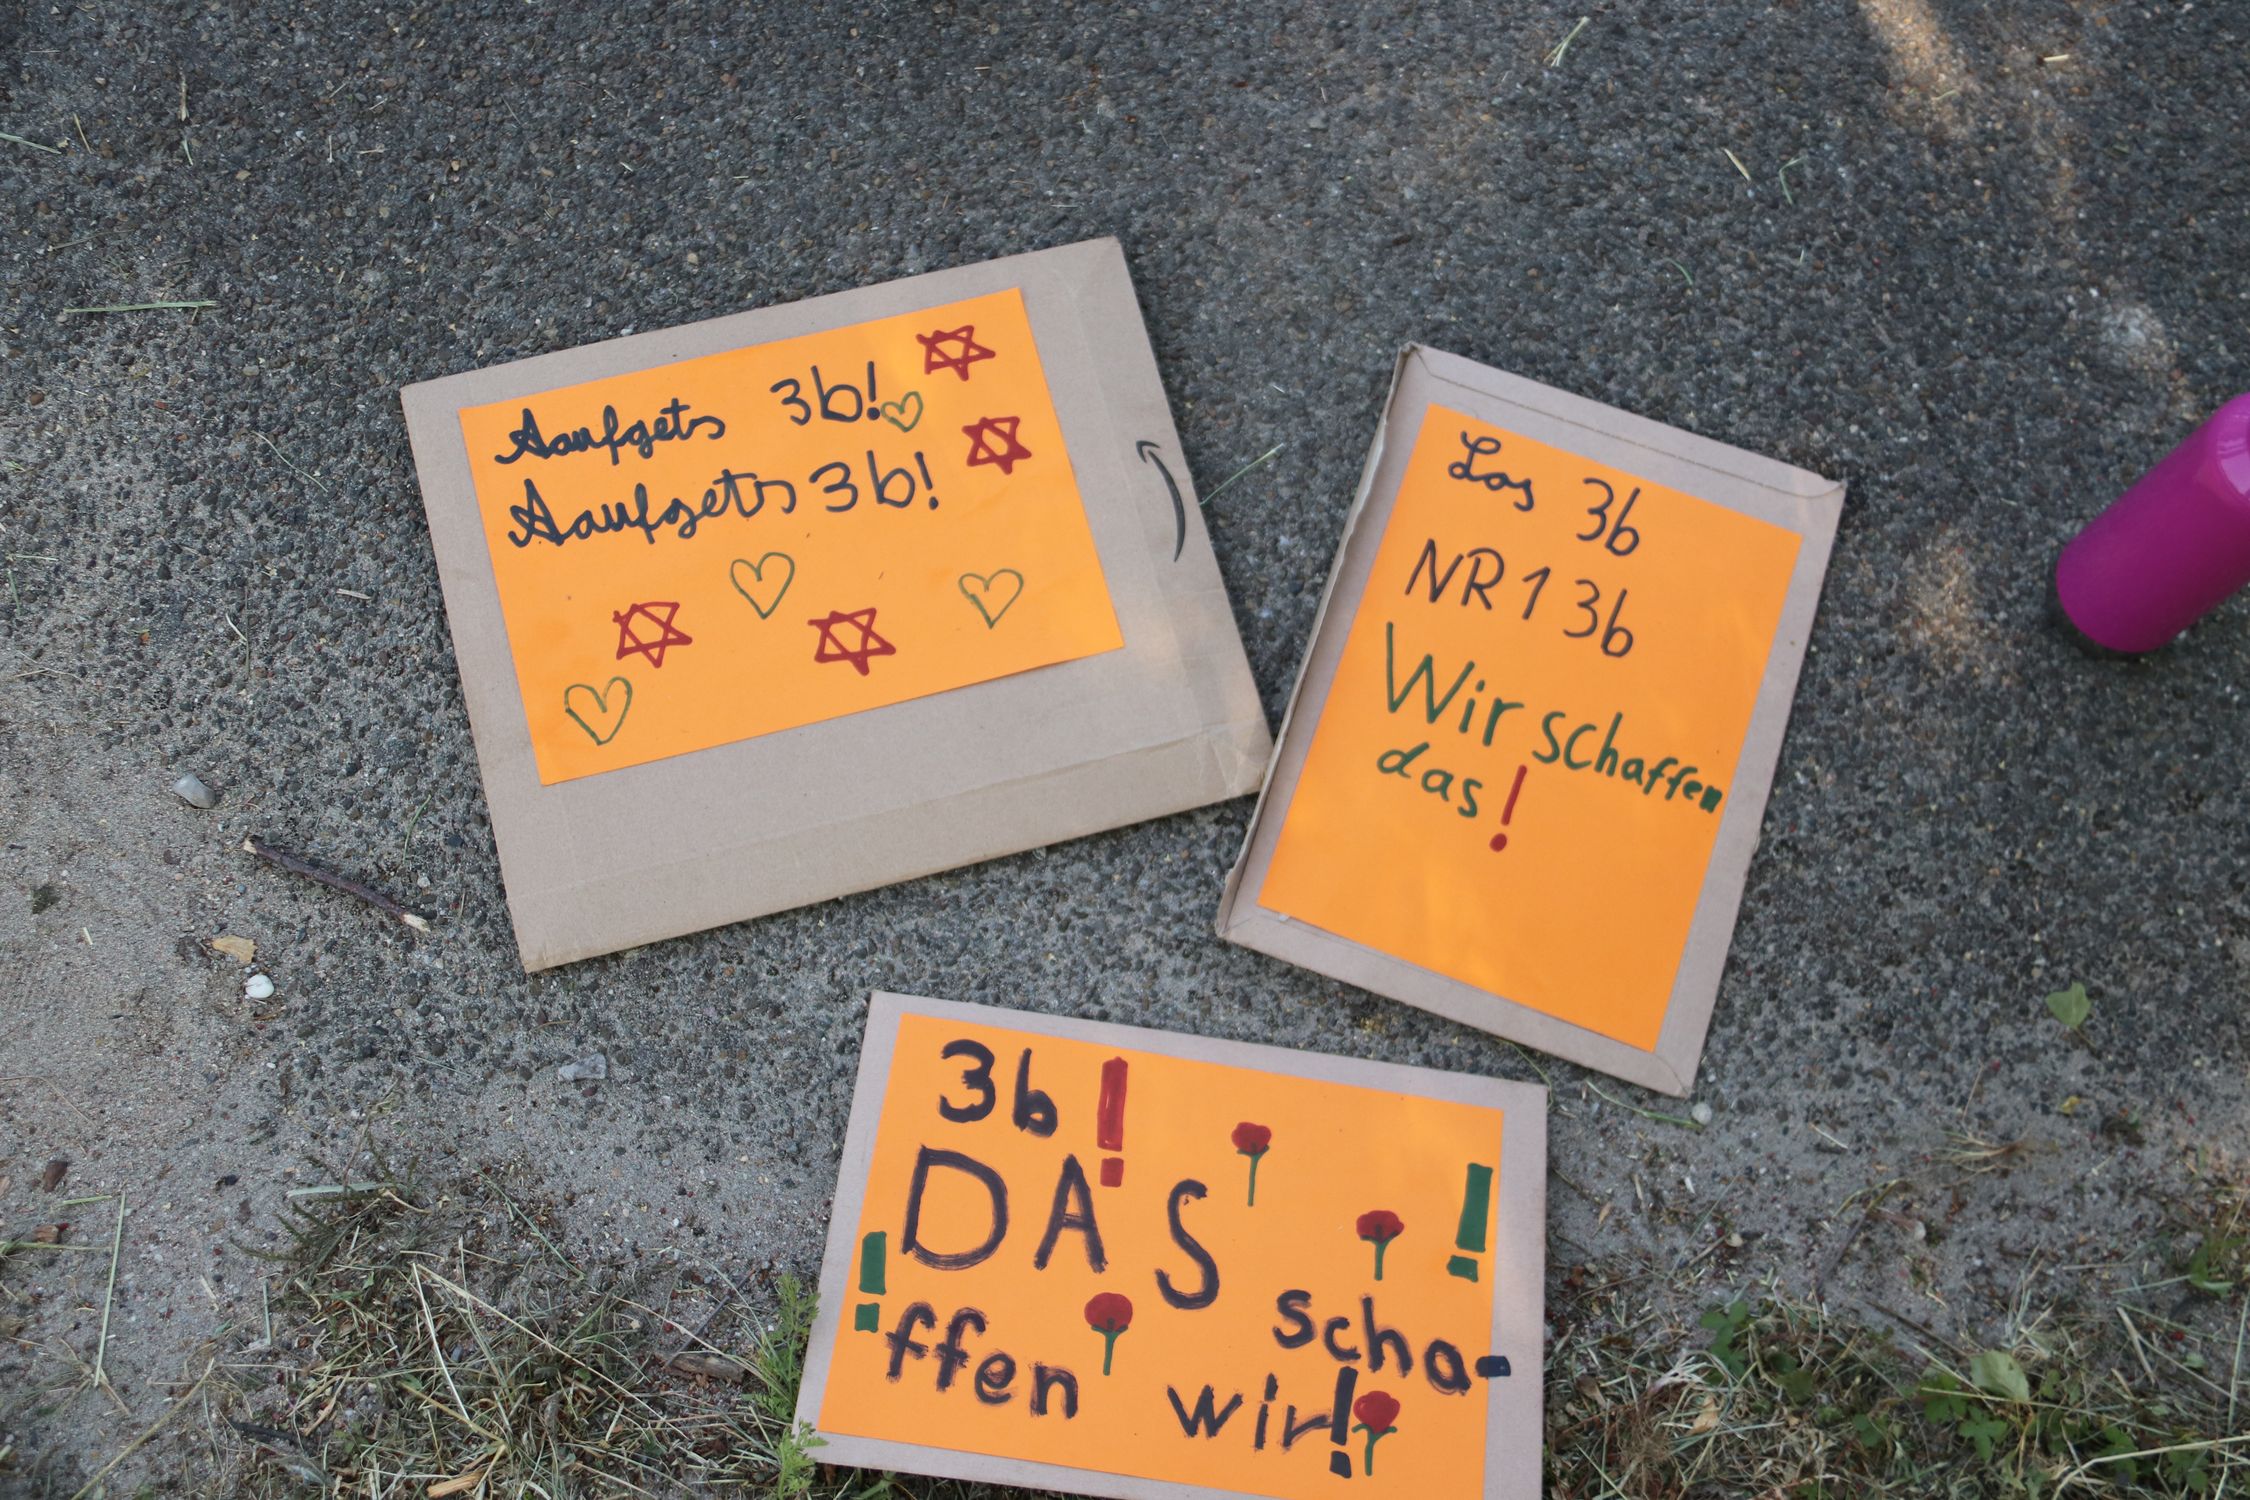 Aaufgets 3b!
Aaufgets 3b!
Los 3b
NR 1 3b
Wir schaffen
das!
3b!
DAS scha-
ffen wir!